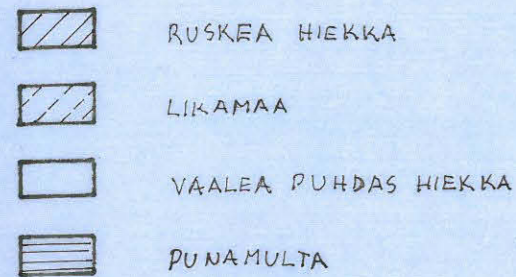 RUSKEA HIEKKA
LIKAMAA
VAALEA PUHDAS HIEKKA
PUNAMULTA